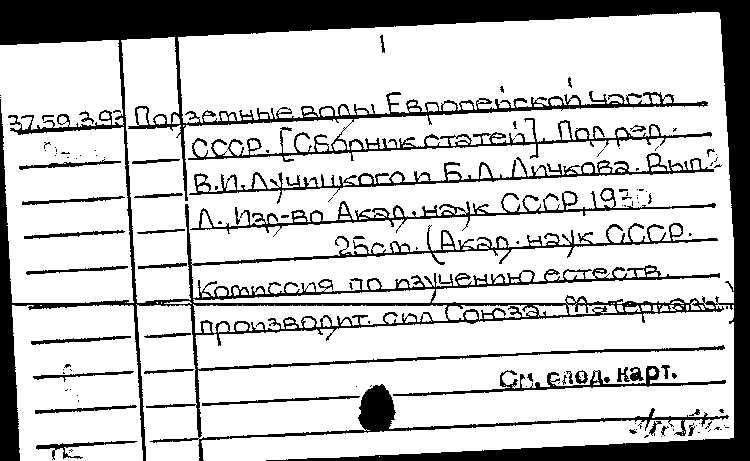 1
37.59.3.93 Подземные воды Европейской части
СССР. [Сборник статей]. Под ред.
В.И. Лучицкого и Б.Л. Личкова. Вып. 2
Л., Изд-во Акад. наук СССР, 1930
25 см. (Акад. наук СССР.
Комиссия по изучению естеств.
производит. сил Союза. Материалы)
См. след. карт.